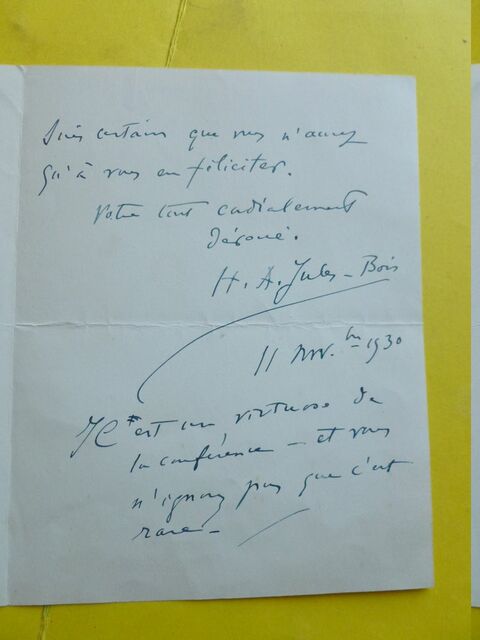 suis certain que vous n'aurez
qu'à vous en féliciter.
Votre tout cordialement
dévoué.
H. A. Jules-Bois
11 nov.bre 1930
Il est un virtuose de
la conférence – et vous
n'ignorez pas que c'est
rare –